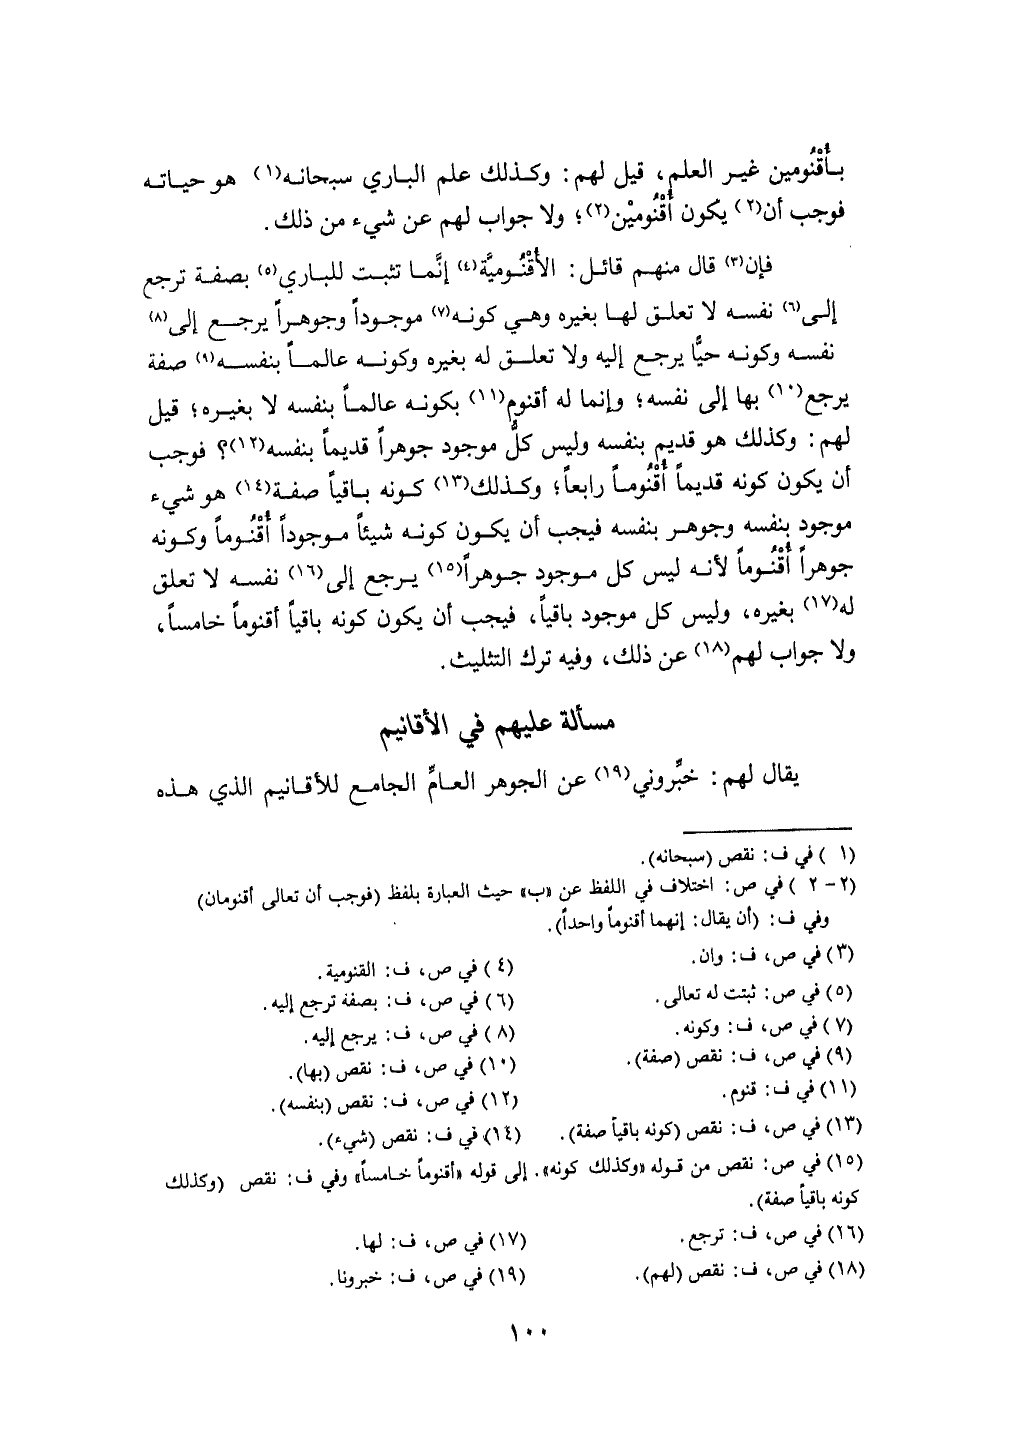 بأُقْنُومين غير العلم، قيل لهم: وكذلك علم الباري سبحانه(١) هو حياته
فوجب أن(٢) يكون أُقْنُوميْن(٢)؛ ولا جواب لهم عن شيء من ذلك.
فإن(٣) قال منهم قائل: الأُقْنُوميَّة(٤) إنَّما تثبت للباري(٥) بصفة ترجع
إلى(٦) نفسه لا تعلق لها بغيره وهي كونه(٧) موجوداً وجوهراً يرجع إلى(٨)
نفسه وكونه حيًّا يرجع إليه ولا تعلق له بغيره وكونه عالماً بنفسه(٩) صفة
يرجع(١٠) بها إلى نفسه؛ وإنما له أقنوم(١١) بكونه عالماً بنفسه لا بغيره؛ قيل
لهم: وكذلك هو قديم بنفسه وليس كلُّ موجود جوهراً قديماً بنفسه(١٢)؟ فوجب
أن يكون كونه قديماً أُقْنُوماً رابعاً؛ وكذلك(١٣) كونه باقياً صفة(١٤) هو شيء
موجود بنفسه وجوهر بنفسه فيجب أن يكون كونه شيئاً موجوداً أُقْنُوماً وكونه
جوهراً أُقْنُوماً لأنه ليس كل موجود جوهراً(١٥) يرجع إلى(١٦) نفسه لا تعلق
له(١٧) بغيره، وليس كل موجود باقياً، فيجب أن يكون كونه باقياً أقنوماً خامساً،
ولا جواب لهم(١٨) عن ذلك، وفيه ترك التثليث.
مسألة عليهم في الأقانيم
يقال لهم: خبِّروني(١٩) عن الجوهر العامِّ الجامع للأقانيم الذي هذه
(١) في ف: نقص (سبحانه).
(٢ - ٢) في ص: اختلاف في اللفظ عن «ب» حيث العبارة بلفظ (فوجب أن تعالى أقنومان)
وفي ف: (أن يقال: إنهما أقنوماً واحداً).
(٣) في ص، ف: وان.
(٤) في ص، ف: القنومية.
(٥) في ص: ثبتت له تعالى.
(٦) في ص، ف: بصفة ترجع إليه.
(٧) في ص، ف: وكونه.
(٨) في ص، ف: يرجع إليه.
(٩) في ص، ف: نقص (صفة).
(١٠) في ص، ف: نقص (بها).
(١١) في ف: قنوم.
(١٢) في ص، ف: نقص (بنفسه).
(١٣) في ص، ف: نقص (كونه باقياً صفة).
(١٤) في ف: نقص (شيء).
(١٥) في ص: نقص من قوله «وكذلك كونه». إلى قوله «أقنوماً خامساً» وفي ف: نقص (وكذلك
كونه باقياً صفة).
(١٦) في ص، ف: ترجع.
(١٧) في ص، ف: لها.
(١٨) في ص، ف: نقص (لهم).
(١٩) في ص، ف: خبرونا.
١٠٠